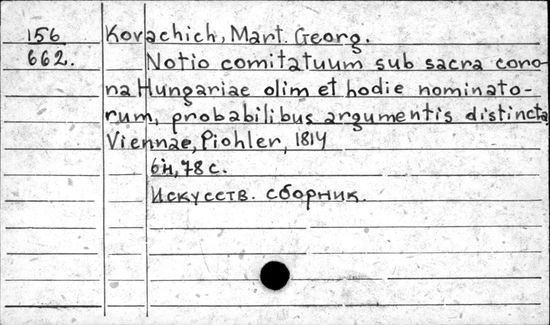 156 Kovachich, Mart. Georg.
662. Notio comitatuum sub sacra coro-
na Hungariae olim et hodie nominato-
rum, probabilibus argumentis distincta
Viennae, Piohler, 1814
6н, 78 с.
Искусств. сборник.